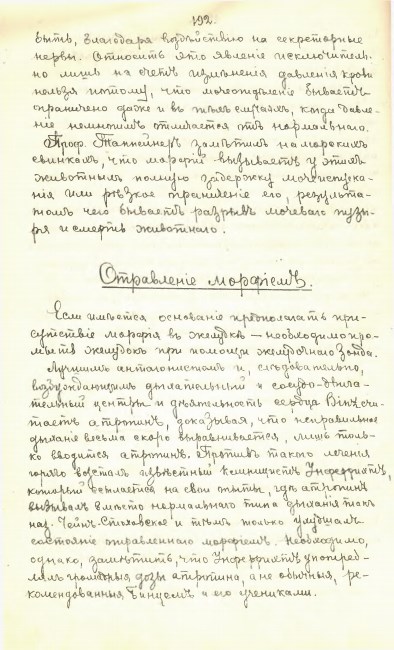 192.
быть, благодаря воздѣйствію на секреторные
нервы. Относить это явленіе исключитель-
но лишь на счетъ измѣненія давленія крови
нельзя потому, что мочеотдѣленіе бываетъ
ограничено даже и въ тѣхъ случаяхъ, когда давле-
ніе немногимъ отличается отъ нормальнаго.
Проф. Таппейнеръ замѣтилъ на морскихъ
свинкахъ, что морфій вызываетъ у этихъ
животныхъ полную задержку мочеиспуска-
нія или рѣзкое ограниченіе его, результа-
томъ чего бываетъ разрывъ мочеваго пузы-
ря и смерть животнаго.
Отравленіе морфіемъ.
Если имѣется основаніе предполагать при-
сутствіе морфія въ желудкѣ — необходимо про-
мыть желудокъ при помощи желудочнаго зонда.
Лучшимъ антагонистомъ и, слѣдовательно,
возбуждающимъ дыхательный и сосудо-двига-
тельный центры и дѣятельность сердца Binz счи-
таетъ атропинъ, доказывая, что неправильное
дыханіе весьма скоро выравнивается, лишь толь-
ко вводится атропинъ. Противъ такого леченія
горячо возсталъ извѣстный клиницистъ Унферрихтъ,
который ссылается на свои опыты, гдѣ атропинъ
вызывалъ вмѣсто нормальнаго типа дыханія такъ
наз. Чейн-Стоковское и тѣмъ только ухудшалъ
состояніе отравленнаго морфіемъ. Необходимо,
однако, замѣтить, что Унферрихтъ употреб-
лялъ громадныя дозы атропина, а не обычныя, ре-
комендованныя Бинцемъ и его учениками.